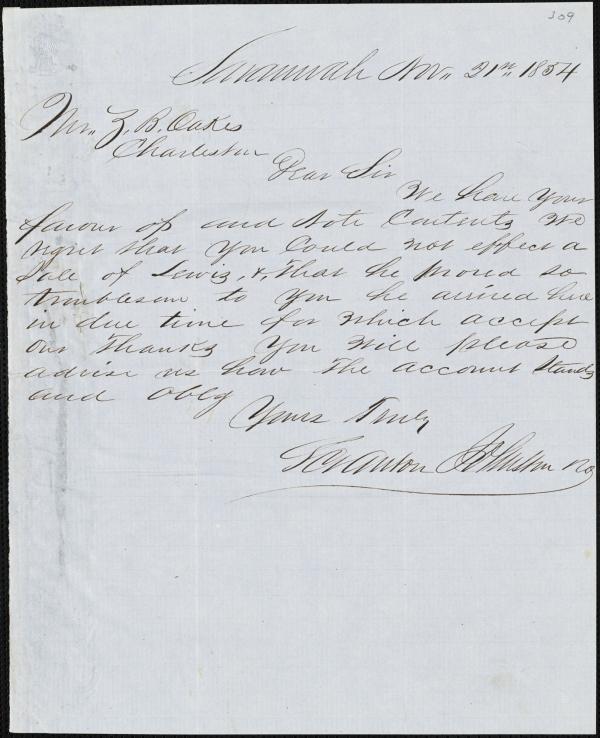 309
Savannah Nov. 21st 1854
Mr. Z. B. Oakes
Charleston
Dear Sir
We have your
favour of and Note Contents We
regret that you Could not effect a
Sale of Lewis, &, that he proved so
troublesom to you he arrived here
in due time for which accept
our thanks you will please
advise us how the account Stands
and oblg
Yours Truly
Scranton Johnston & Co